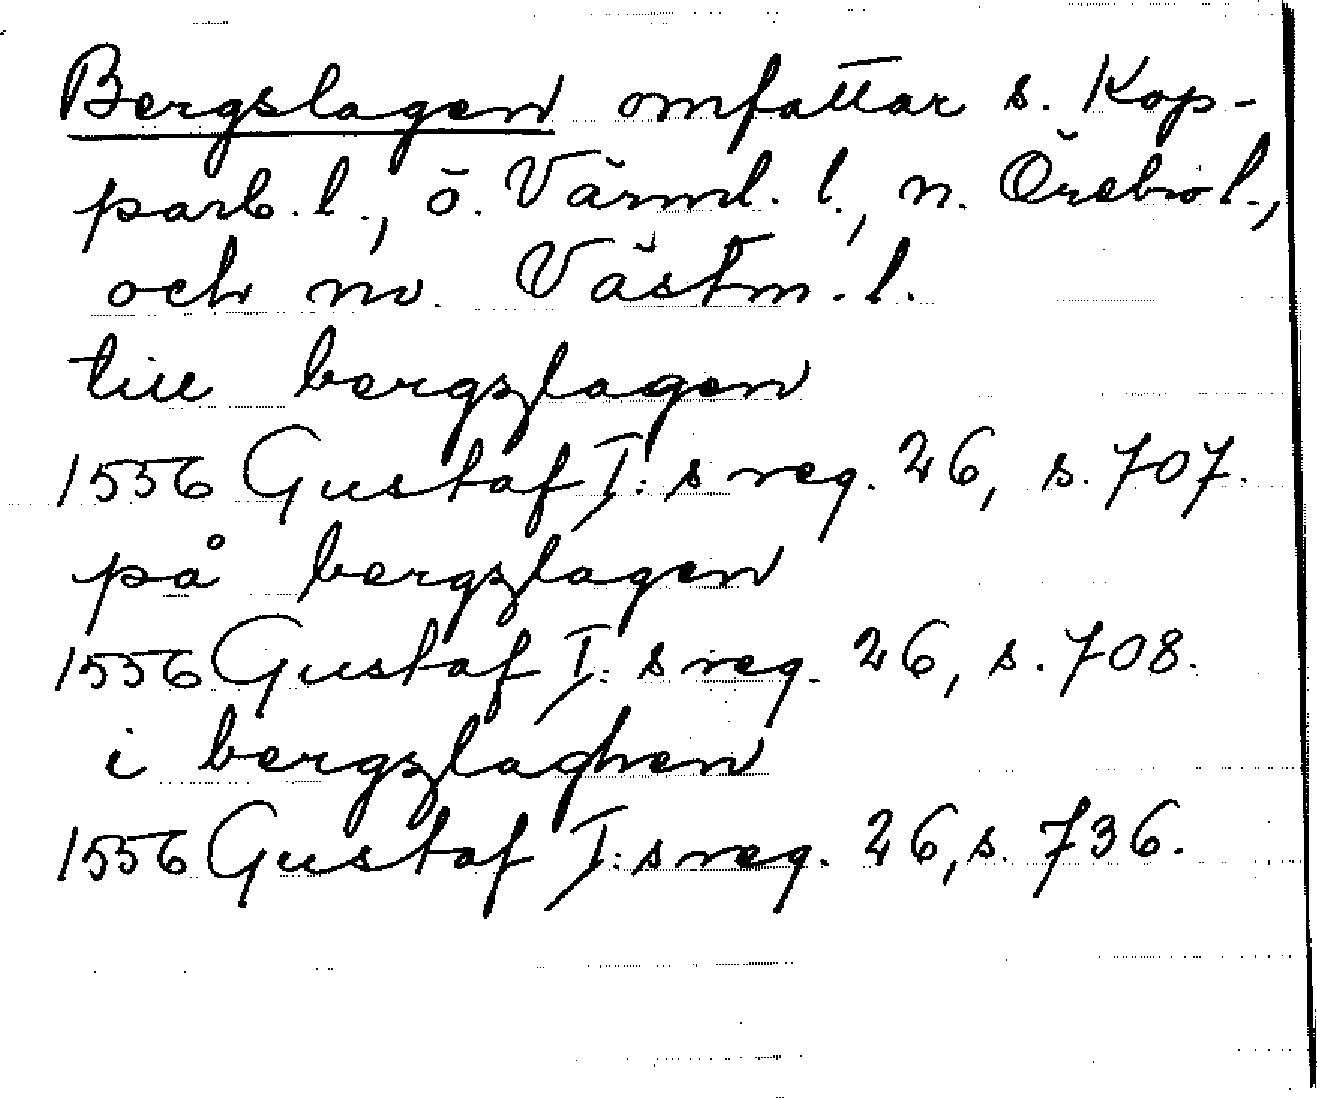 Bergslagen omfattar s. Kop-
parb. l., ö. Värml. l., n. Örebro l.,
och nv. Västm. l.
till bergzlagen
1556 Gustaf I:s reg. 26, s. 707.
på bergzlagen
1556 Gustaf I:s reg. 26, s. 708.
i bergzlaghen
1556 Gustaf I:s reg. 26, s. 736.